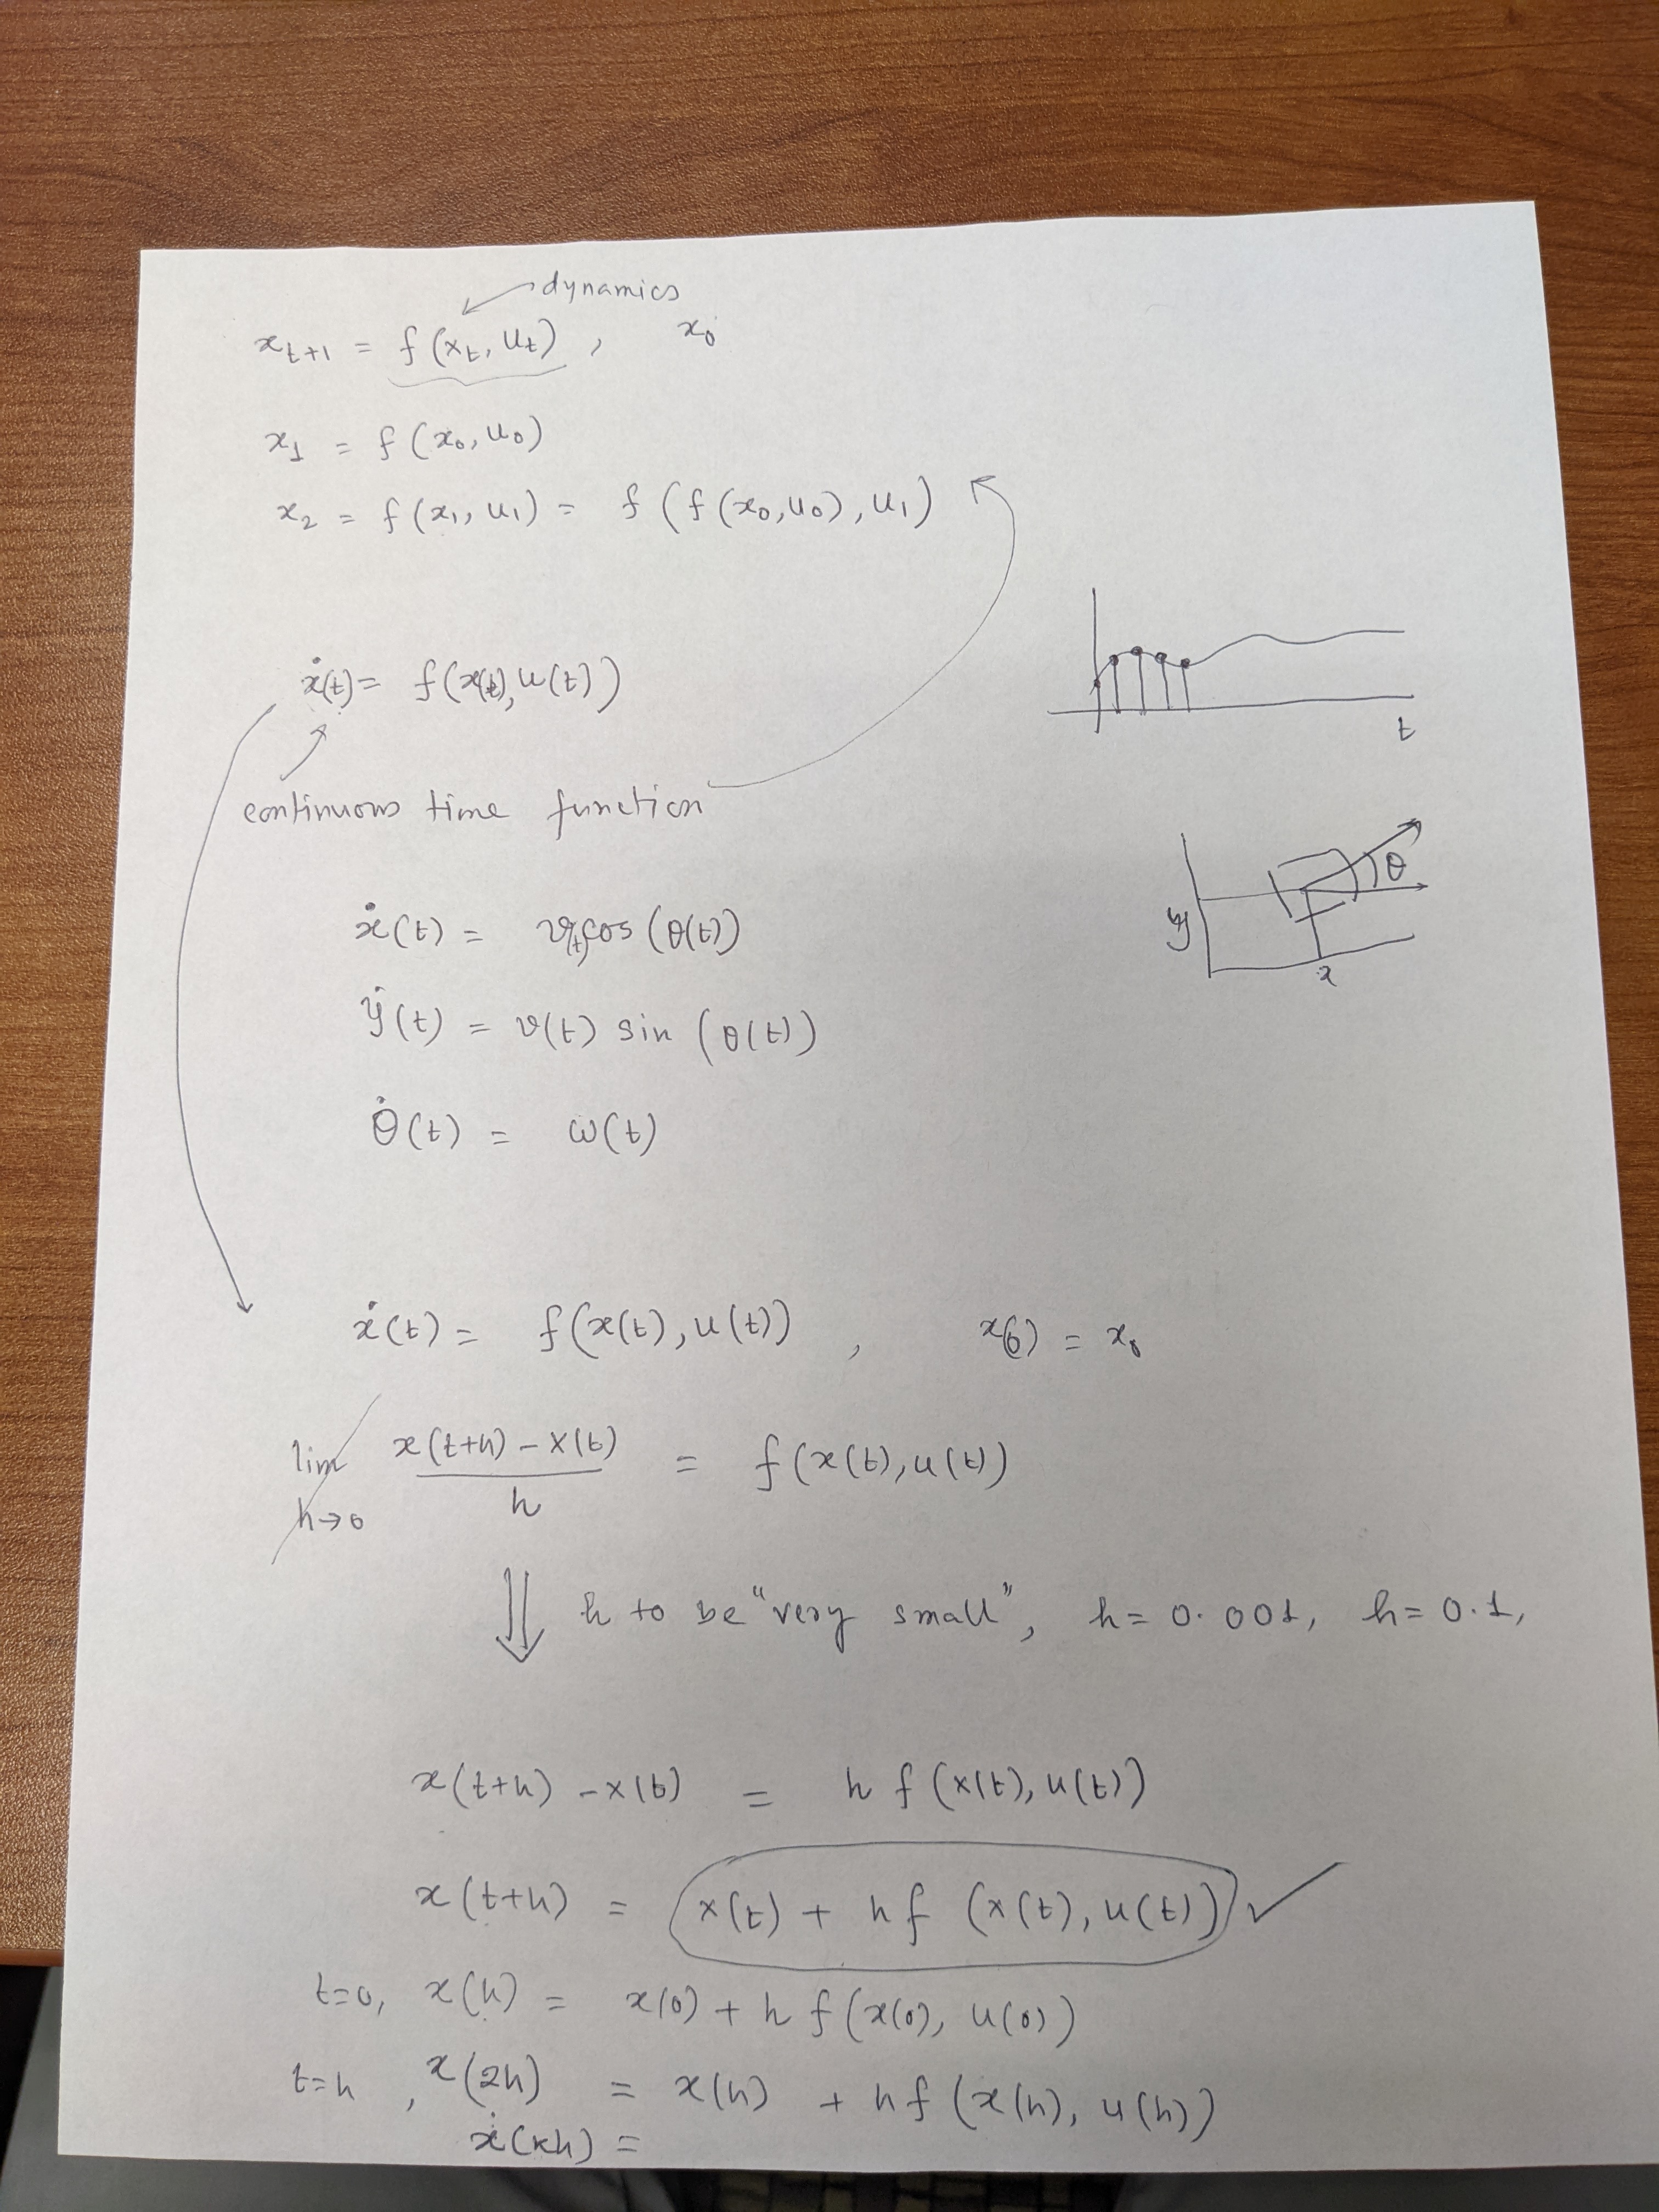 dynamics
x_{t+1} = f(x_t, u_t) , x_0
x_1 = f(x_0, u_0)
x_2 = f(x_1, u_1) = f(f(x_0, u_0), u_1)
ẋ(t) = f(x(t), u(t))
t
continuous time function
θ
y
x
ẋ(t) = v(t) cos(θ(t))
ẏ(t) = v(t) sin(θ(t))
θ̇(t) = ω(t)
ẋ(t) = f(x(t), u(t)) , x(0) = x_0
lim h→0 (x(t+h) - x(t))/h = f(x(t), u(t))
⇓ h to be "very small", h = 0.001, h = 0.1,
x(t+h) - x(t) = h f(x(t), u(t))
x(t+h) = x(t) + h f(x(t), u(t)) ✓
t=0, x(h) = x(0) + h f(x(0), u(0))
t=h, x(2h) = x(h) + h f(x(h), u(h))
ẋ(kh) =